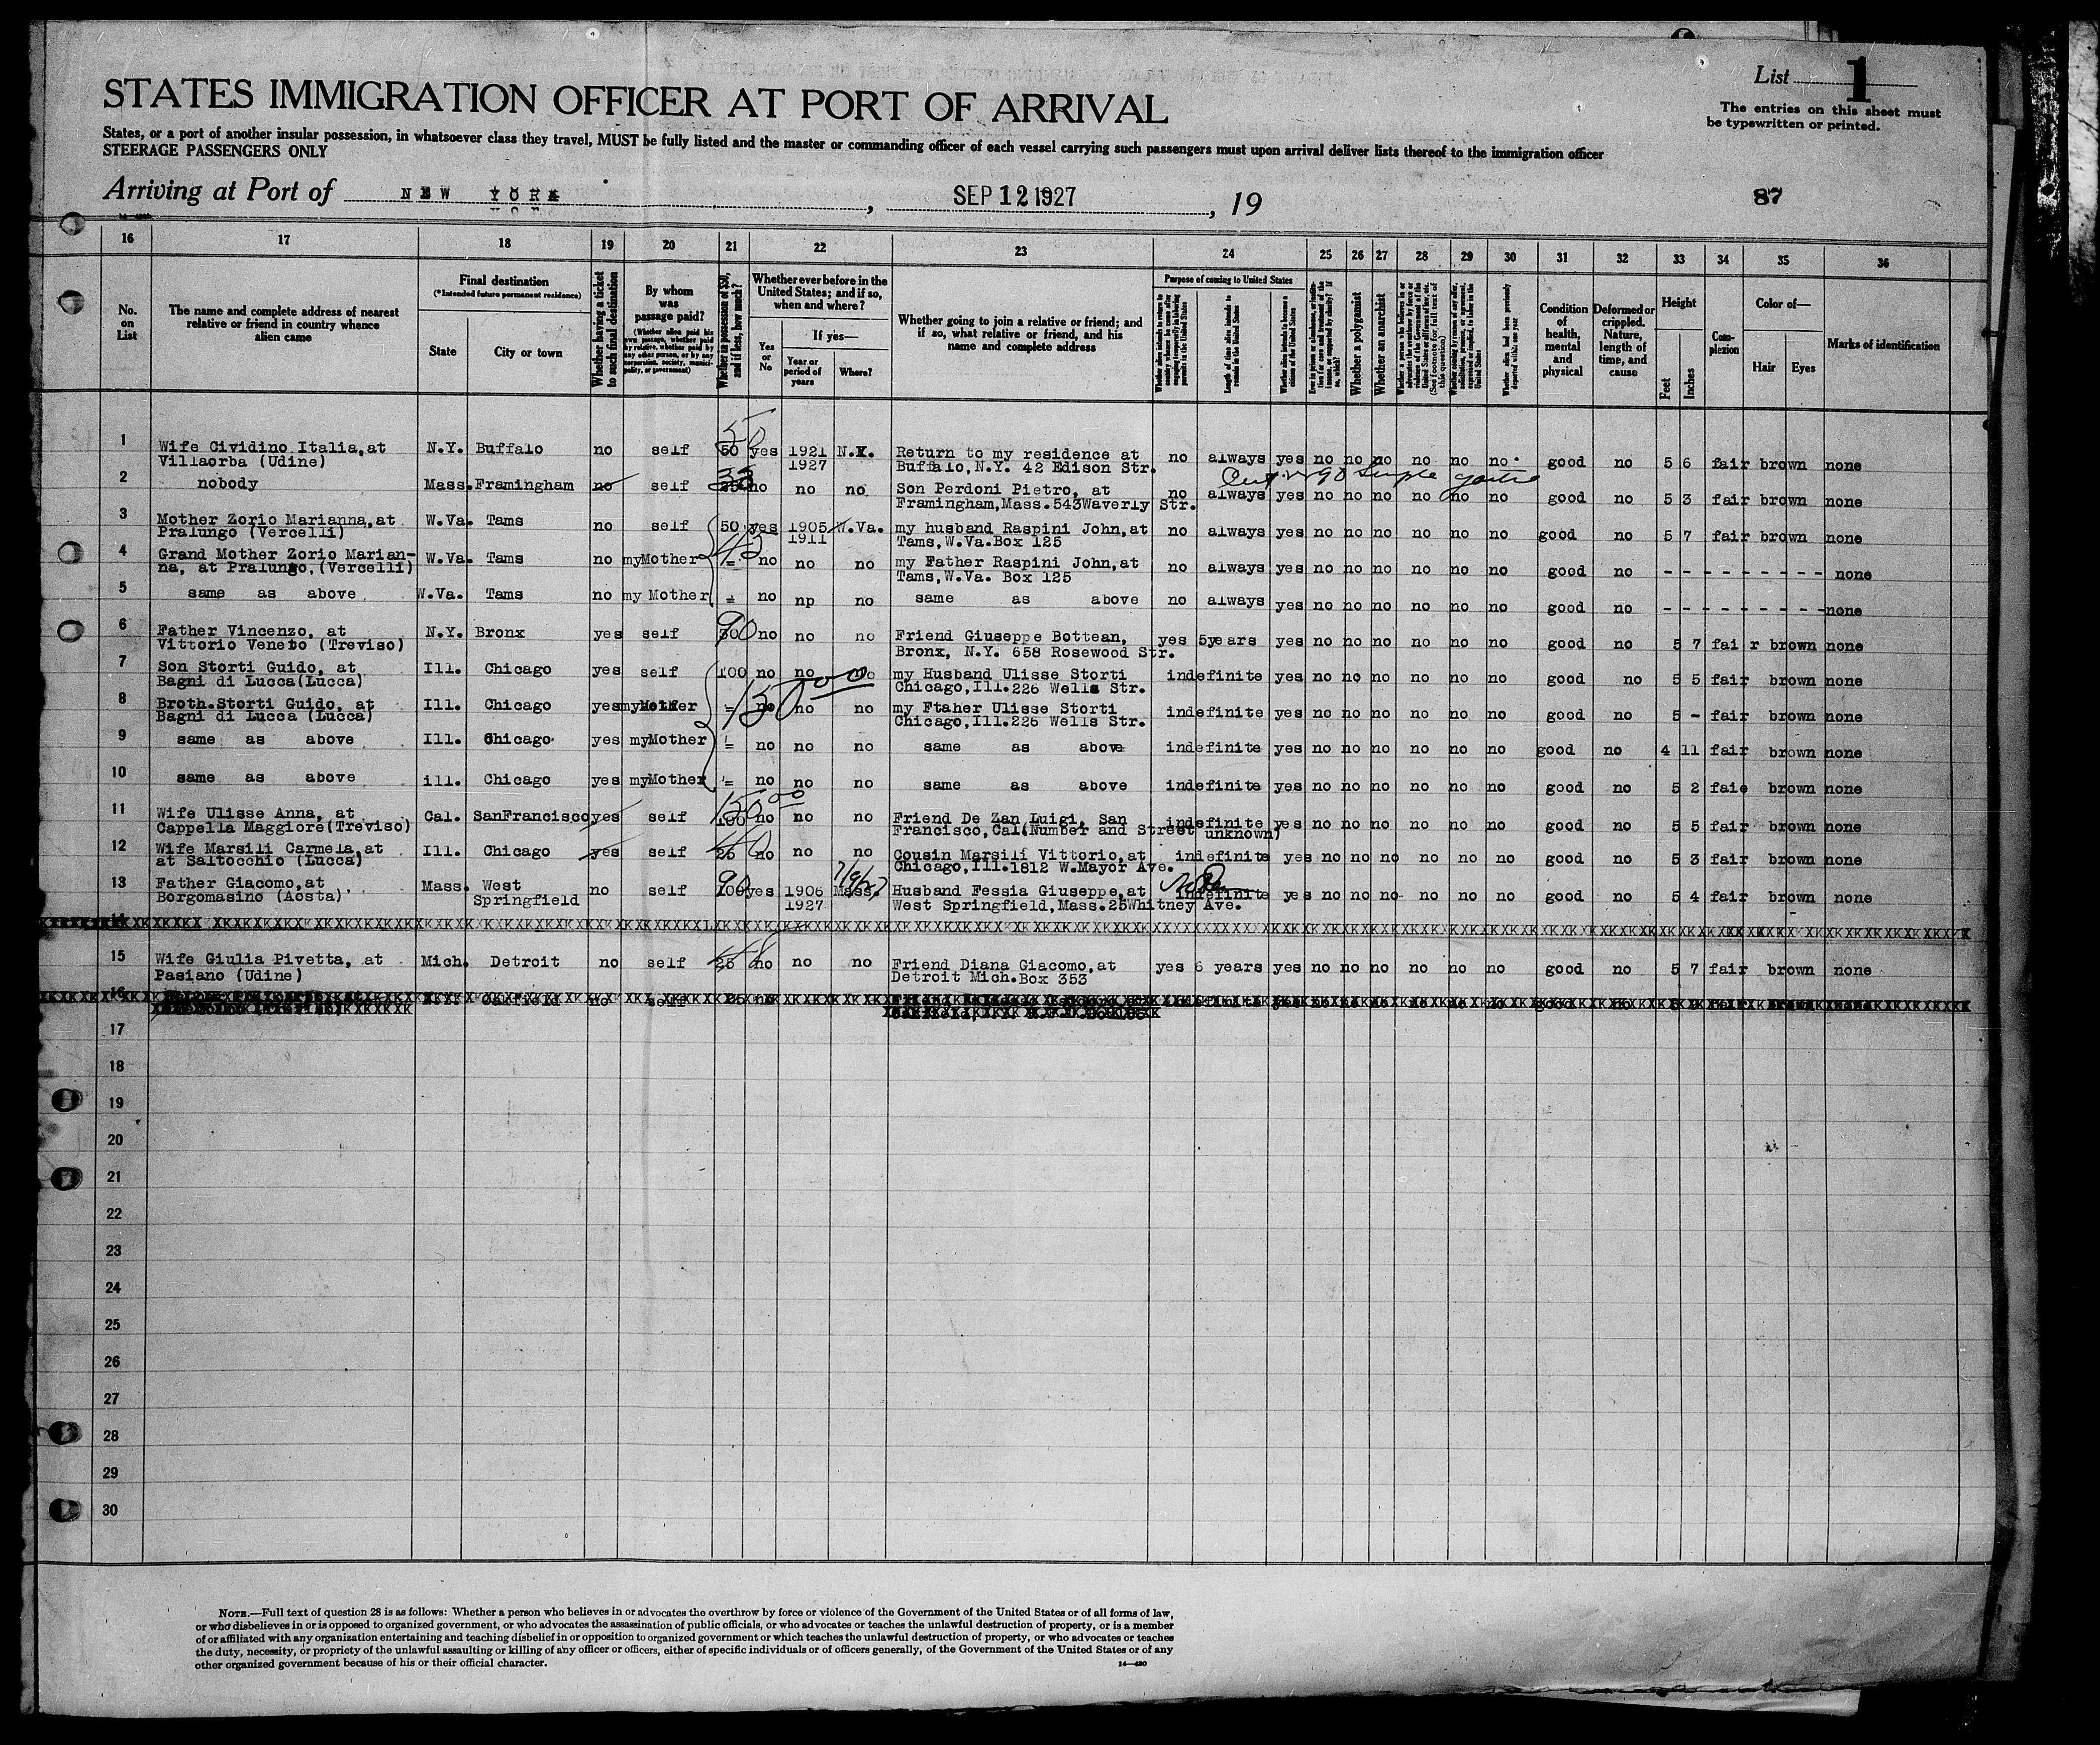 List 1
The entries on this sheet must
be typewritten or printed.
STATES IMMIGRATION OFFICER AT PORT OF ARRIVAL
States, or a port of another insular possession, in whatsoever class they travel, MUST be fully listed and the master or commanding officer of each vessel carrying such passengers must upon arrival deliver lists thereof to the immigration officer
STEERAGE PASSENGERS ONLY
Arriving at Port of NEW YORK, SEP 12 1927, 19
87
16 17 18 19 20 21 22 23 24 25 26 27 28 29 30 31 32 33 34 35 36
No. on List
The name and complete address of nearest relative or friend in country whence alien came
Final destination
(*Intended future permanent residence)
State
City or town
Whether having a ticket to such final destination
By whom was passage paid?
(Whether alien paid his own passage, whether paid by relative, whether paid by any other person, or by any corporation, society, municipality, or government)
Whether in possession of $50, and if less, how much?
Whether ever before in the United States; and if so, when and where?
Yes or No
If yes—
Year or period of years
Where?
Whether going to join a relative or friend; and if so, what relative or friend, and his name and complete address
Purpose of coming to United States
Length of time alien intends to remain in the United States
Whether alien intends to become a citizen of the United States
Whether a polygamist
Whether an anarchist
Condition of health, mental and physical
Deformed or crippled. Nature, length of time, and cause
Height
Feet
Inches
Complexion
Color of—
Hair
Eyes
Marks of identification
1 Wife Cividino Italia, at N.Y. Buffalo no self 50 yes 1921 N.Y. Return to my residence at no always yes no no no no no no good no 5 6 fair brown none
Villaorba (Udine) 1927 Buffalo, N.Y. 42 Edison Str.
2 nobody Mass. Framingham no self no no no Son Perdoni Pietro, at no always yes no no no no no no good no 5 3 fair brown none
Framingham, Mass. 543 Waverly Str.
3 Mother Zorio Marianna, at W.Va. Tams no self 50 yes 1905 W.Va. my husband Raspini John, at no always yes no no no no no no good no 5 7 fair brown none
Pralungo (Vercelli) 1911 Tams, W.Va. Box 125
4 Grand Mother Zorio Marian- W.Va. Tams no myMother 45 = no no no my Father Raspini John, at no always yes no no no no no no good no - - - - - - - - - none
na, at Pralungo, (Vercelli) Tams, W.Va. Box 125
5 same as above W.Va. Tams no my Mother = no np no same as above no always yes no no no no no no good no - - - - - - - - - none
6 Father Vincenzo, at N.Y. Bronx yes self 90 no no no Friend Giuseppe Bottean, yes 5years yes no no no no no no good no 5 7 fai r brown none
Vittorio Veneto (Treviso) Bronx, N.Y. 658 Rosewood Str.
7 Son Storti Guido, at Ill. Chicago yes self 100 no no no my Husband Ulisse Storti indefinite yes no no no no no no good no 5 5 fair brown none
Bagni di Lucca (Lucca) 150 00 Chicago, Ill. 226 Wells Str.
8 Broth. Storti Guido, at Ill. Chicago yes myMother = no no no my Ftaher Ulisse Storti indefinite yes no no no no no no good no 5 - fair brown none
Bagni di Lucca (Lucca) Chicago, Ill. 226 Wells Str.
9 same as above Ill. Chicago yes myMother = no no no same as above indefinite yes no no no no no no good no 4 11 fair brown none
10 same as above ill. Chicago yes myMother = no no no same as above indefinite yes no no no no no no good no 5 2 faie brown none
11 Wife Ulisse Anna, at Cal. SanFrancisco yes self 150 00 100 no no no Friend De Zan Luigi, San indefinite yes no no no no no no good no 5 5 fair brown none
Cappella Maggiore (Treviso) Francisco, Cal (Number and Street unknown)
12 Wife Marsili Carmela, at Ill. Chicago yes self 25 no no no Cousin Marsili Vittorio, at indefinite yes no no no no no no good no 5 3 fair brown none
at Saltocchio (Lucca) Chicago, Ill. 1812 W. Mayor Ave.
13 Father Giacomo, at Mass. West no self 90 100 yes 1906 Mass. Husband Fessia Giuseppe, at indefinite yes no no no no no no good no 5 4 fair brown none
Borgomasino (Aosta) Springfield 1927 West Springfield, Mass. 25 Whitney Ave.
14
15 Wife Giulia Pivetta, at Mich. Detroit no self 25 no no no Friend Diana Giacomo, at yes 6 years yes no no no no no no good no 5 7 fair brown none
Pasiano (Udine) Detroit Mich. Box 353
16
17
18
19
20
21
22
23
24
25
26
27
28
29
30
NOTE.—Full text of question 28 is as follows: Whether a person who believes in or advocates the overthrow by force or violence of the Government of the United States or of all forms of law,
or who disbelieves in or is opposed to organized government, or who advocates the assassination of public officials, or who advocates or teaches the unlawful destruction of property, or is a member
of or affiliated with any organization entertaining and teaching disbelief in or opposition to organized government or which teaches the unlawful destruction of property, or who advocates or teaches
the duty, necessity, or propriety of the unlawful assaulting or killing of any officer or officers, either of specific individuals or of officers generally, of the Government of the United States or of any
other organized government because of his or their official character.
14—430